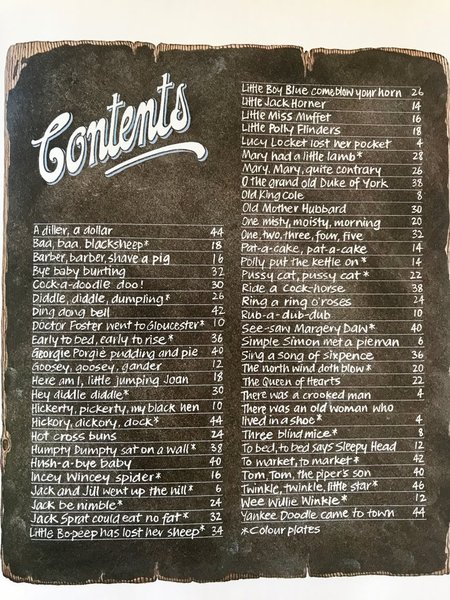 Contents
A diller, a dollar 44
Baa, baa, blacksheep* 18
Barber, barber, shave a pig 16
Bye baby bunting 32
Cock-a-doodle doo! 30
Diddle, diddle, dumpling* 26
Ding dong bell 42
Doctor Foster went to Gloucester* 10
Early to bed, early to rise* 36
Georgie Porgie pudding and pie 40
Goosey, goosey, gander 12
Here am I, little jumping Joan 18
Hey diddle diddle* 30
Hickerty, pickerty, my black hen 10
Hickory, dickory, dock* 44
Hot cross buns 24
Humpty Dumpty sat on a wall* 38
Hush-a-bye baby 40
Incey Wincey spider* 16
Jack and Jill went up the hill* 6
Jack be nimble* 24
Jack Sprat could eat no fat* 32
Little Bo-peep has lost her sheep* 34
Little Boy Blue come blow your horn 26
Little Jack Horner 14
Little Miss Muffet 16
Little Polly Flinders 18
Lucy Locket lost her pocket 4
Mary had a little lamb* 28
Mary, Mary, quite contrary 26
O the grand old Duke of York 38
Old King Cole 8
Old Mother Hubbard 30
One misty, moisty, morning 20
One, two, three, four, five 32
Pat-a-cake, pat-a-cake 14
Polly put the kettle on* 14
Pussy cat, pussy cat* 22
Ride a cock-horse 38
Ring a ring o'roses 24
Rub-a-dub-dub 10
See-saw Margery Daw* 40
Simple Simon met a pieman 6
Sing a song of sixpence 36
The north wind doth blow* 20
The Queen of Hearts 22
There was a crooked man 4
There was an old woman who
lived in a shoe* 4
Three blind mice* 8
To bed, to bed says Sleepy Head 12
To market, to market* 42
Tom, Tom, the piper's son 40
Twinkle, twinkle, little star* 46
Wee Willie Winkie* 12
Yankee Doodle came to town 44
*Colour plates